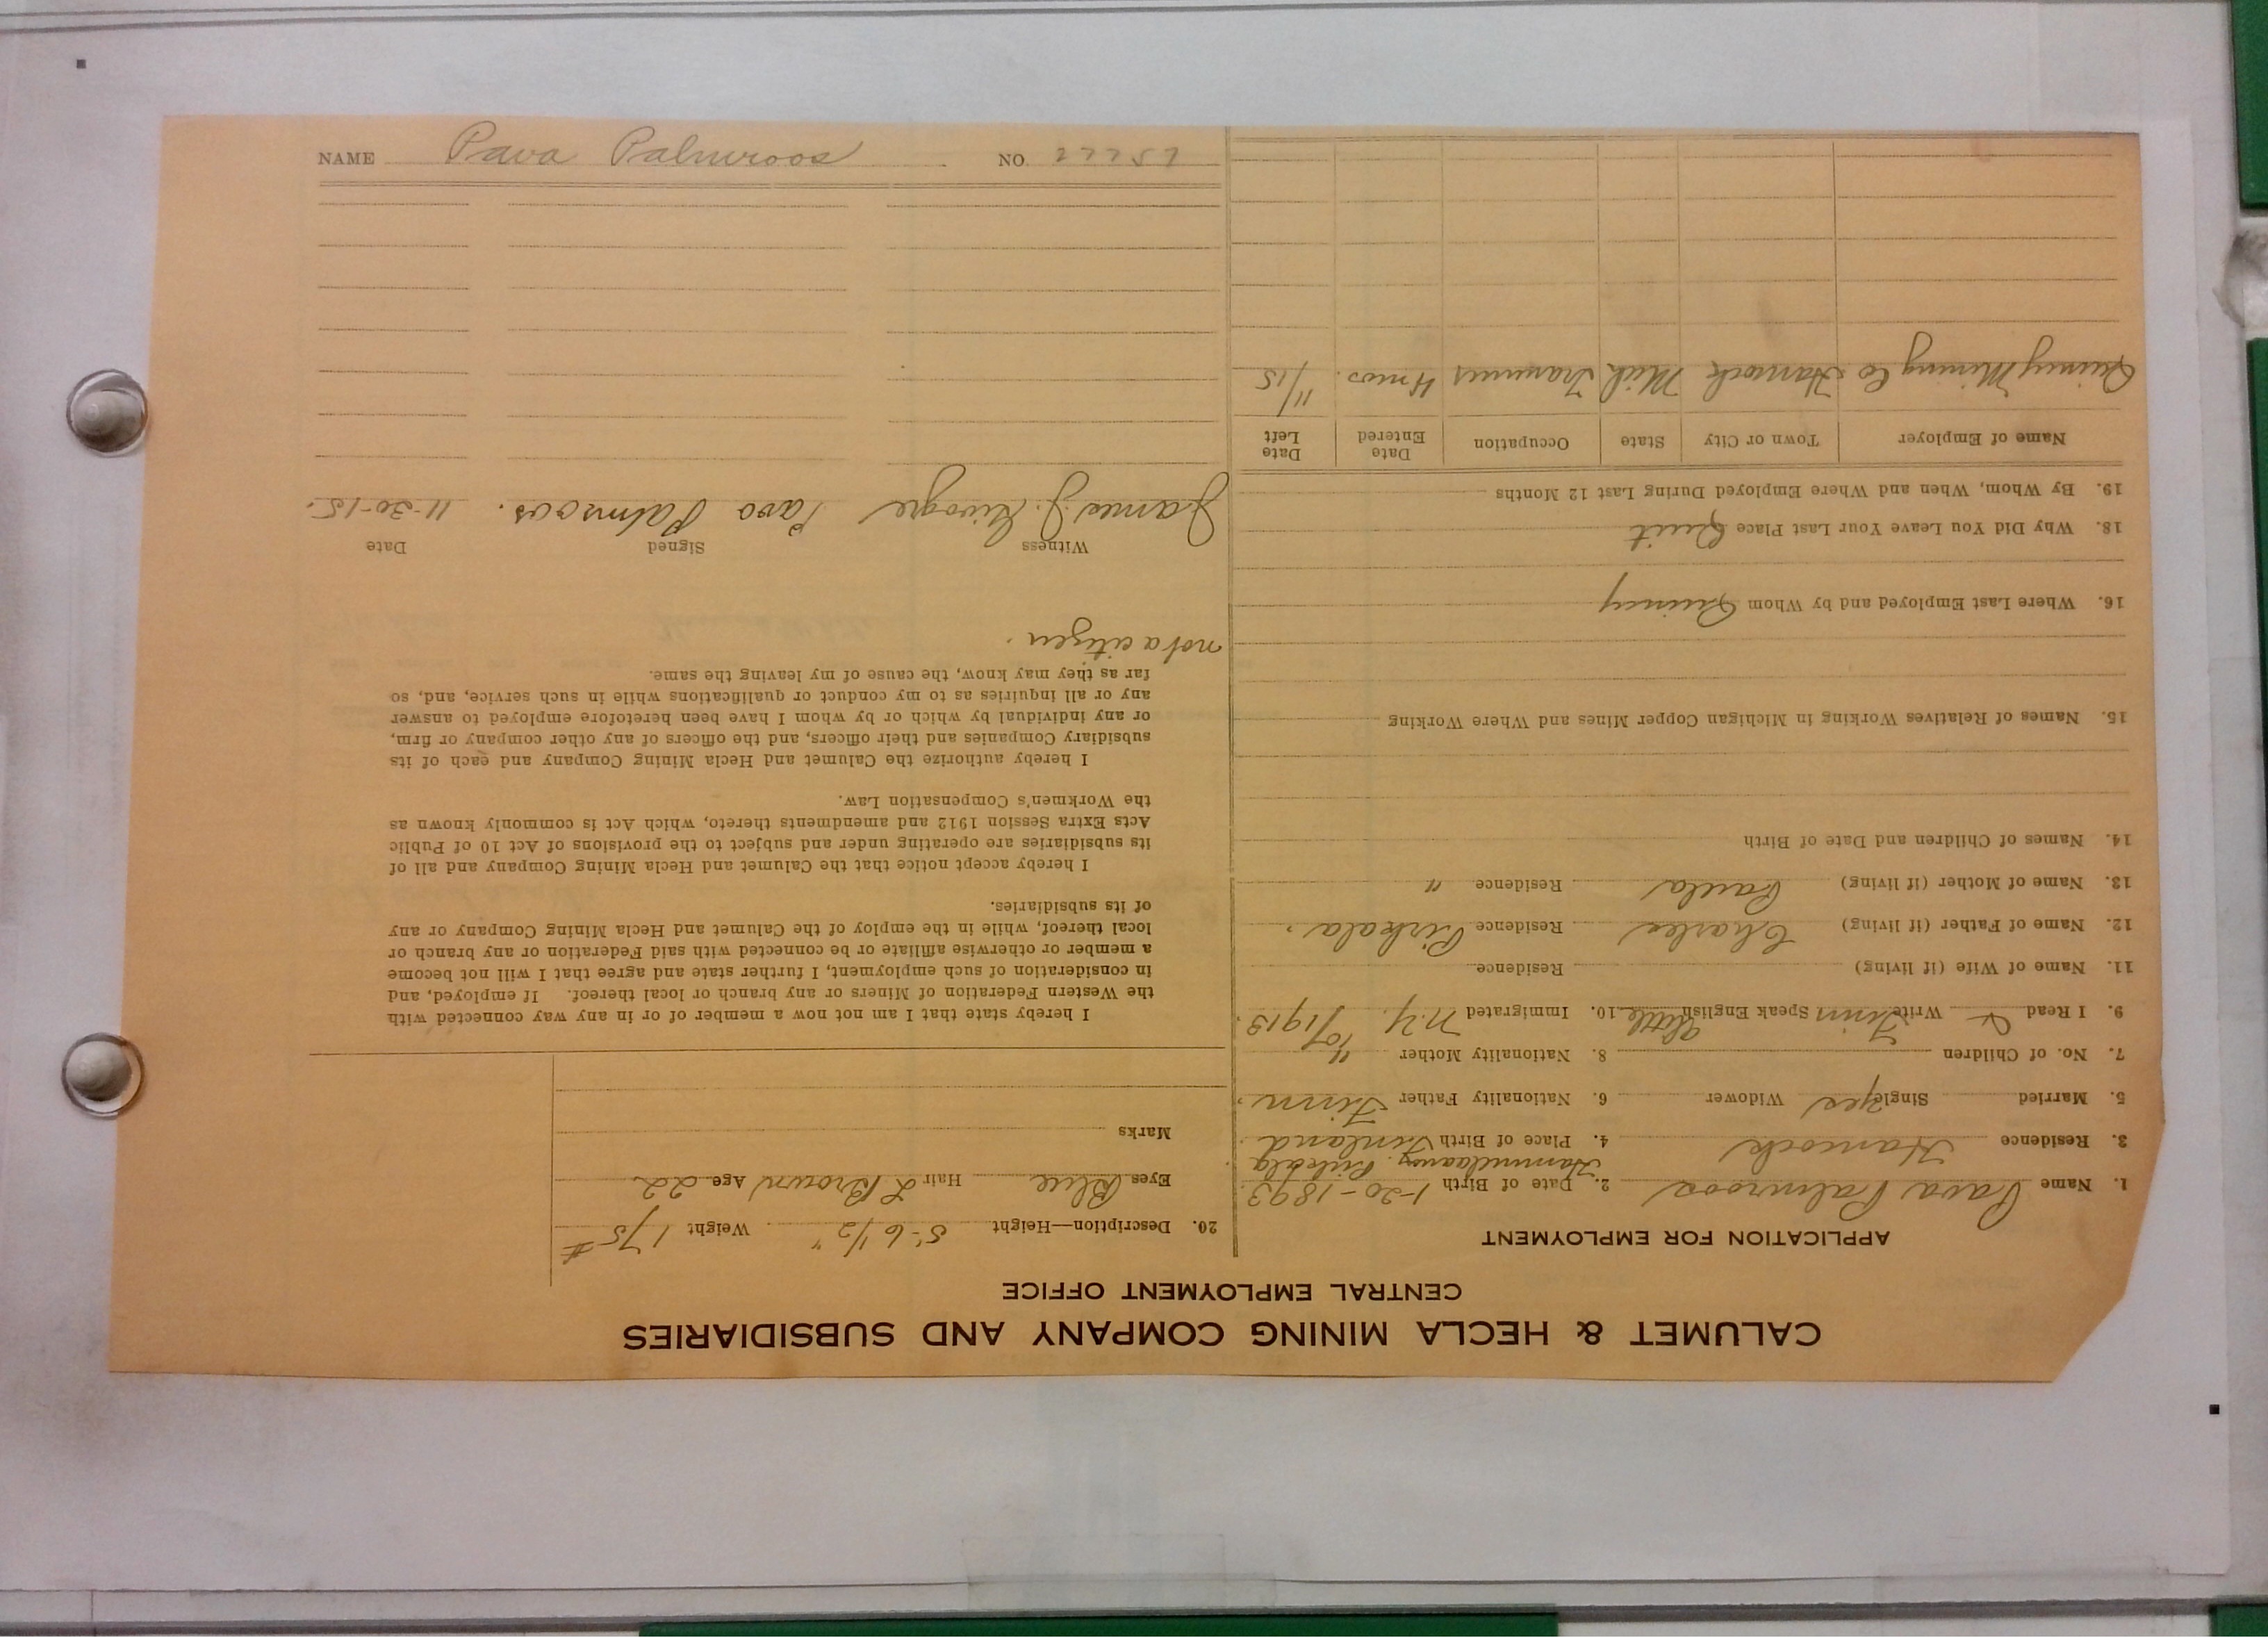 CALUMET & HECLA MINING COMPANY AND SUBSIDIARIES
CENTRAL EMPLOYMENT OFFICE
APPLICATION FOR EMPLOYMENT
1. Name Pava Palmroos 2. Date of Birth 1-20-1893
3. Residence Hancock 4. Place of Birth Pirkala Finland
5. Married Single yes Widower 6. Nationality Father Finn.
7. No. of Children 8. Nationality Mother "
9. I Read & Write Finn Speak English Little 10. Immigrated N.Y. 10/1913
11. Name of Wife (if living) Residence
12. Name of Father (if living) Charles Residence Pirkala,
13. Name of Mother (if living) Residence "
14. Names of Children and Date of Birth
15. Names of Relatives Working in Michigan Copper Mines and Where Working
16. Where Last Employed and by Whom Quincy
18. Why Did You Leave Your Last Place Quit
19. By Whom, When and Where Employed During Last 12 Months
Name of Employer Town or City State Occupation Date Entered Date Left
Quincy Mining Co Hancock Mich Trammer 4 mos. 11/15
20. Description—Height 5-6 1/2" Weight 175 #
Eyes Blue Hair L Brown Age 22
Marks
I hereby state that I am not now a member of or in any way connected with
the Western Federation of Miners or any branch or local thereof. If employed, and
in consideration of such employment, I further state and agree that I will not become
a member or otherwise affiliate or be connected with said Federation or any branch or
local thereof, while in the employ of the Calumet and Hecla Mining Company or any
of its subsidiaries.
I hereby accept notice that the Calumet and Hecla Mining Company and all of
its subsidiaries are operating under and subject to the provisions of Act 10 of Public
Acts Extra Session 1912 and amendments thereto, which Act is commonly known as
the Workmen's Compensation Law.
I hereby authorize the Calumet and Hecla Mining Company and each of its
subsidiary Companies and their officers, and the officers of any other company or firm,
or any individual by which or by whom I have been heretofore employed to answer
any or all inquiries as to my conduct or qualifications while in such service, and, so
far as they may know, the cause of my leaving the same.
not a citizen.
Witness Signed Date
James J. Pavo Palmroos. 11-30-15.
NAME Pava Palmroos NO. 22257